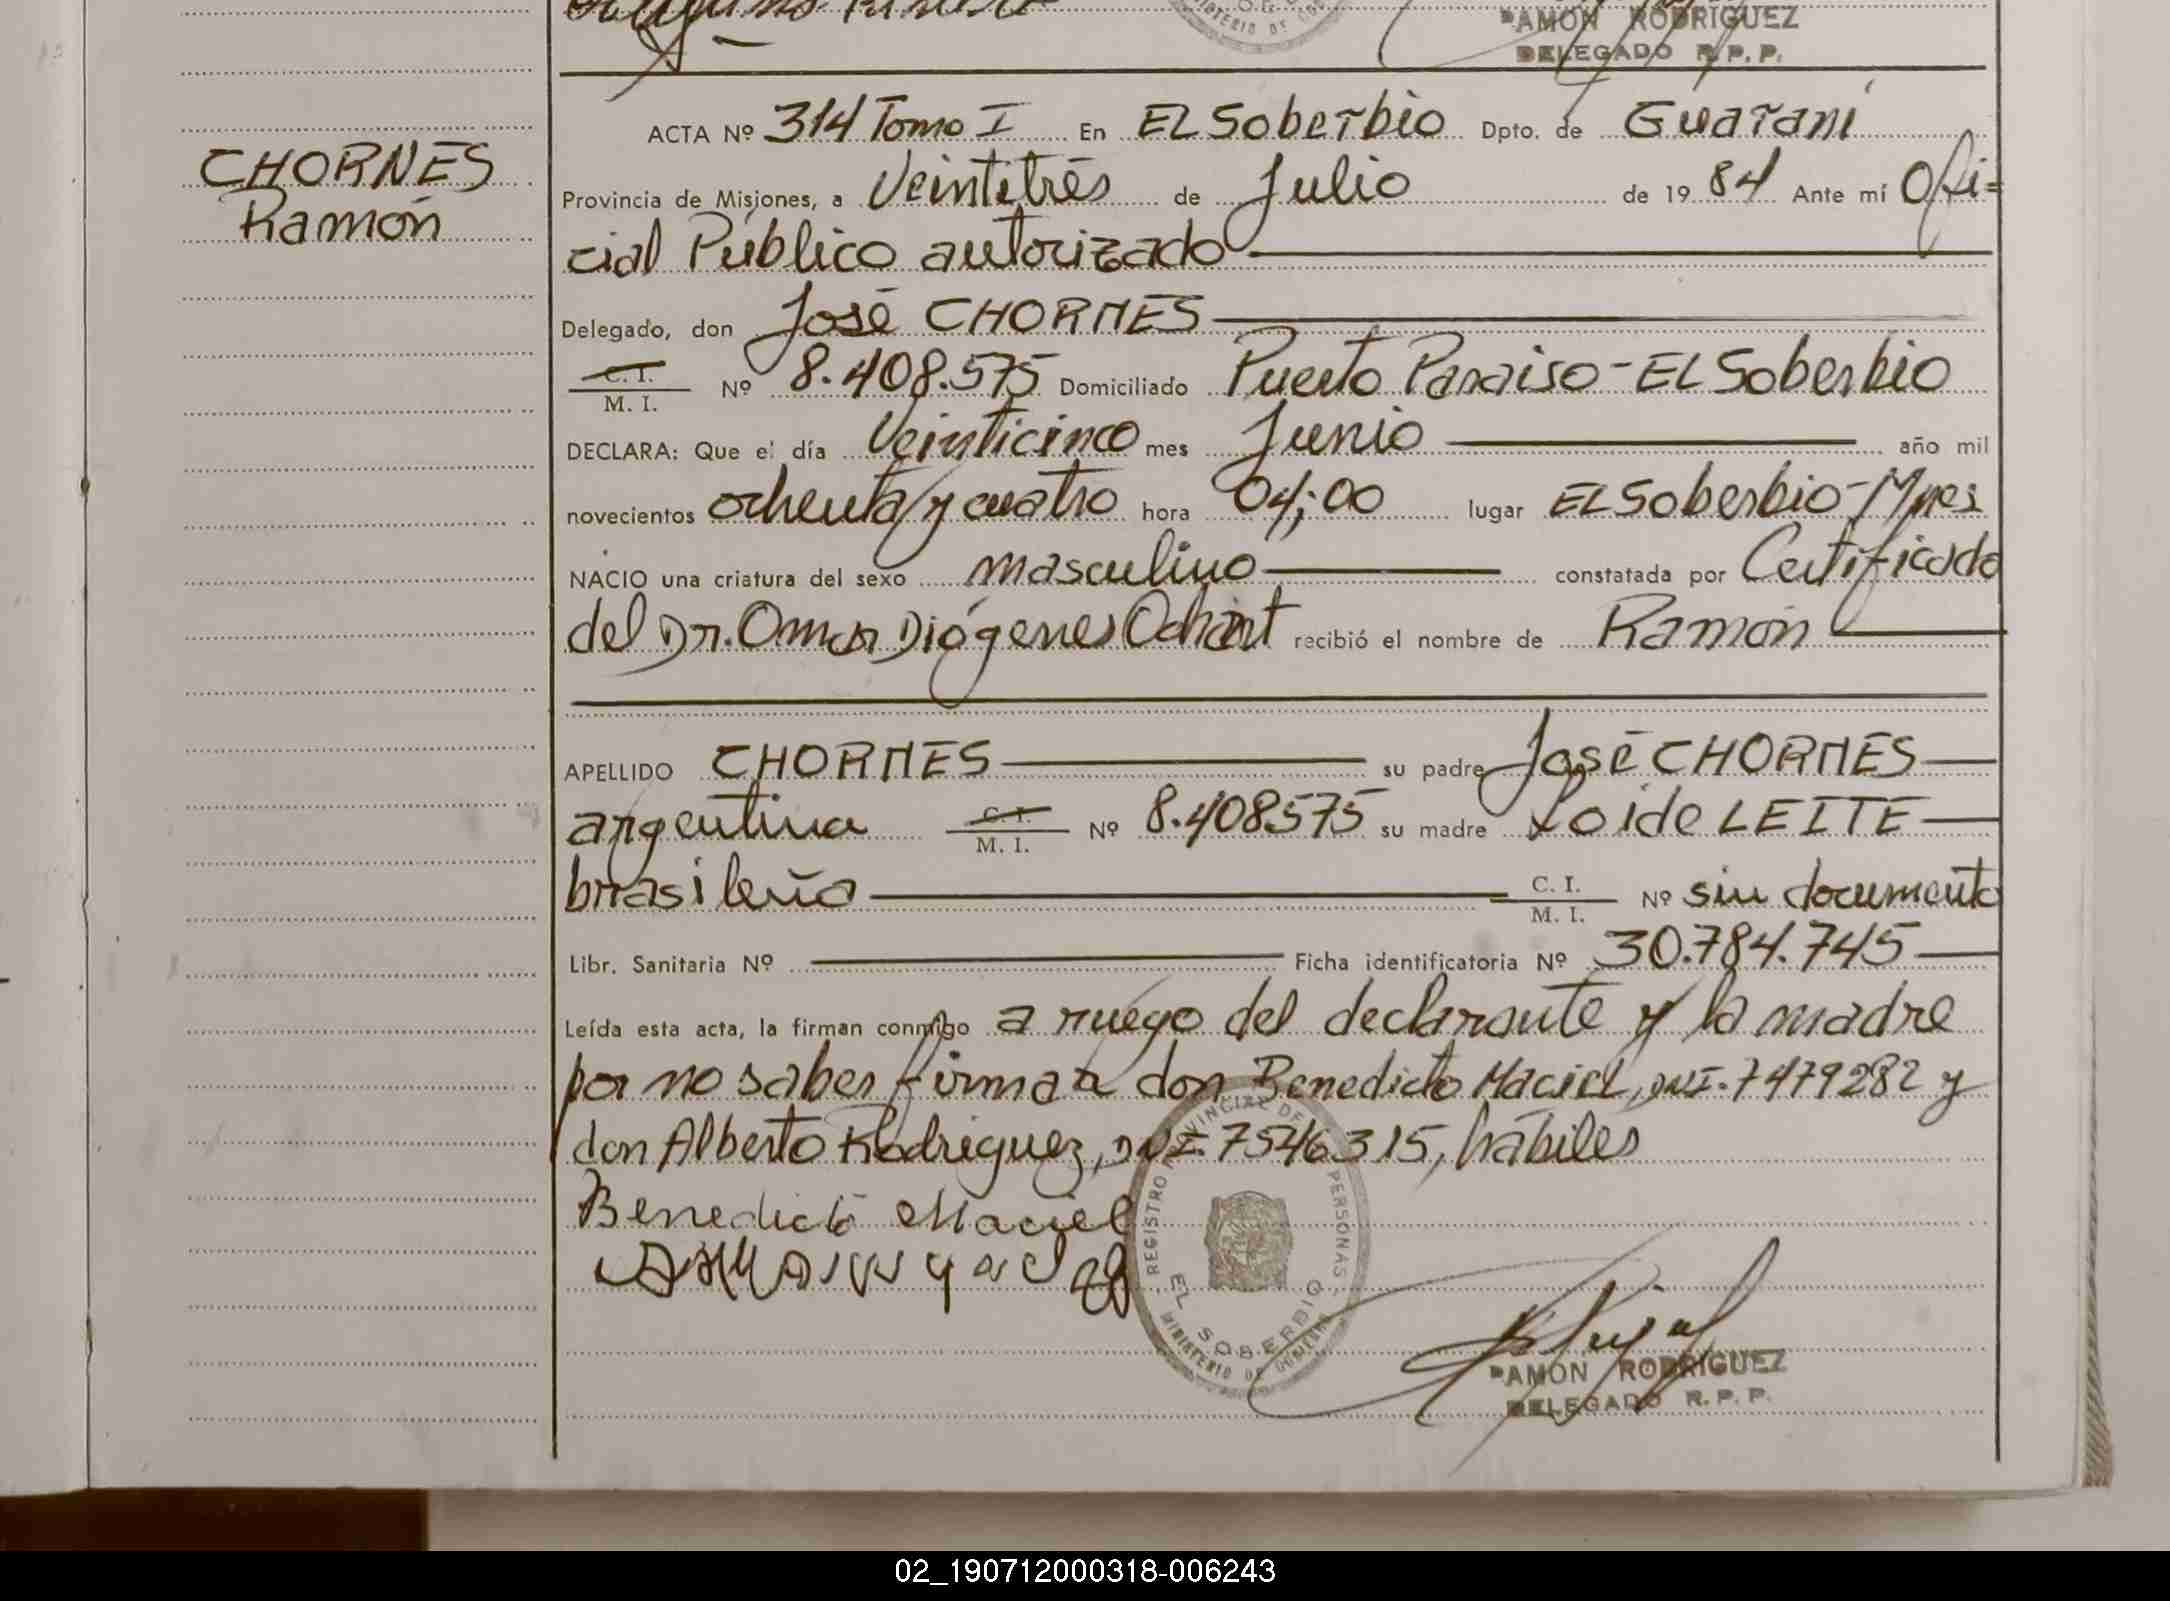 PAMON RODRIGUEZ
DELEGADO R.P.P.
CHORNES
Ramón
ACTA Nº 314 Tomo I En EL Soberbio Dpto. de Guaraní
Provincia de Misiones, a Veintitrés de Julio de 19 84 Ante mí Ofi=
cial Público autorizado
Delegado, don José CHORNES
C. I. M. I. Nº 8.408.575 Domiciliado Puerto Paraiso - EL Soberbio
DECLARA: Que el día Veinticinco mes Junio año mil
novecientos ochenta y cuatro hora 04;00 lugar EL Soberbio - Mnes
NACIO una criatura del sexo masculino constatada por Certificado
del Dr. Omar Diógenes recibió el nombre de Ramón
APELLIDO CHORNES su padre José CHORNES
argentina C. I. M. I. Nº 8.408575 su madre Loide LEITE
brasileña C. I. M. I. Nº sin documento
Libr. Sanitaria Nº Ficha identificatoria Nº 30.784.745
Leída esta acta, la firman conmigo a ruego del declarante y la madre
por no saber firmar don Benedicto Maciel, DNI. 7479282 y
don Alberto Rodriguez, DNI. 7546315, hábiles
Benedicto Maciel
REGISTRO PROVINCIAL DE PERSONAS
EL SOBERBIO
MINISTERIO DE GOBIERNO
PAMON RODRIGUEZ
DELEGADO R.P.P.
02_190712000318-006243